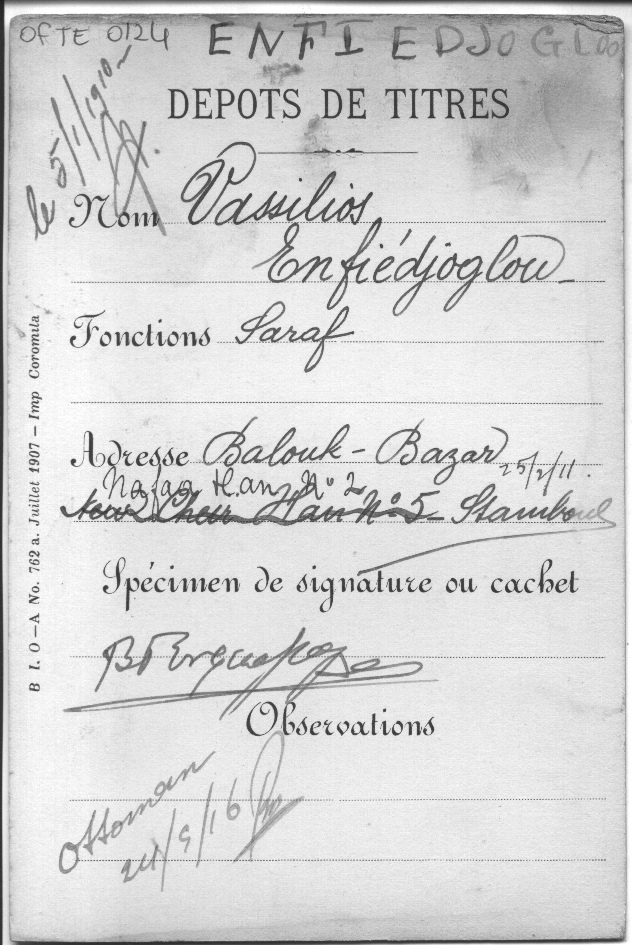 OFTE 0124
ENFIEDJOGLOU
le 5/1/1910
DEPOTS DE TITRES
Nom Vassilios
Enfiédjoglou
Fonctions Saraf
Adresse Balouk-Bazar
25/2/11.
Han N° 2
Han N° 5 Stamboul
Spécimen de signature ou cachet
Observations
Ottoman
24/9/16
B I. O – A No. 762 a. Juillet 1907 – Imp Coromila